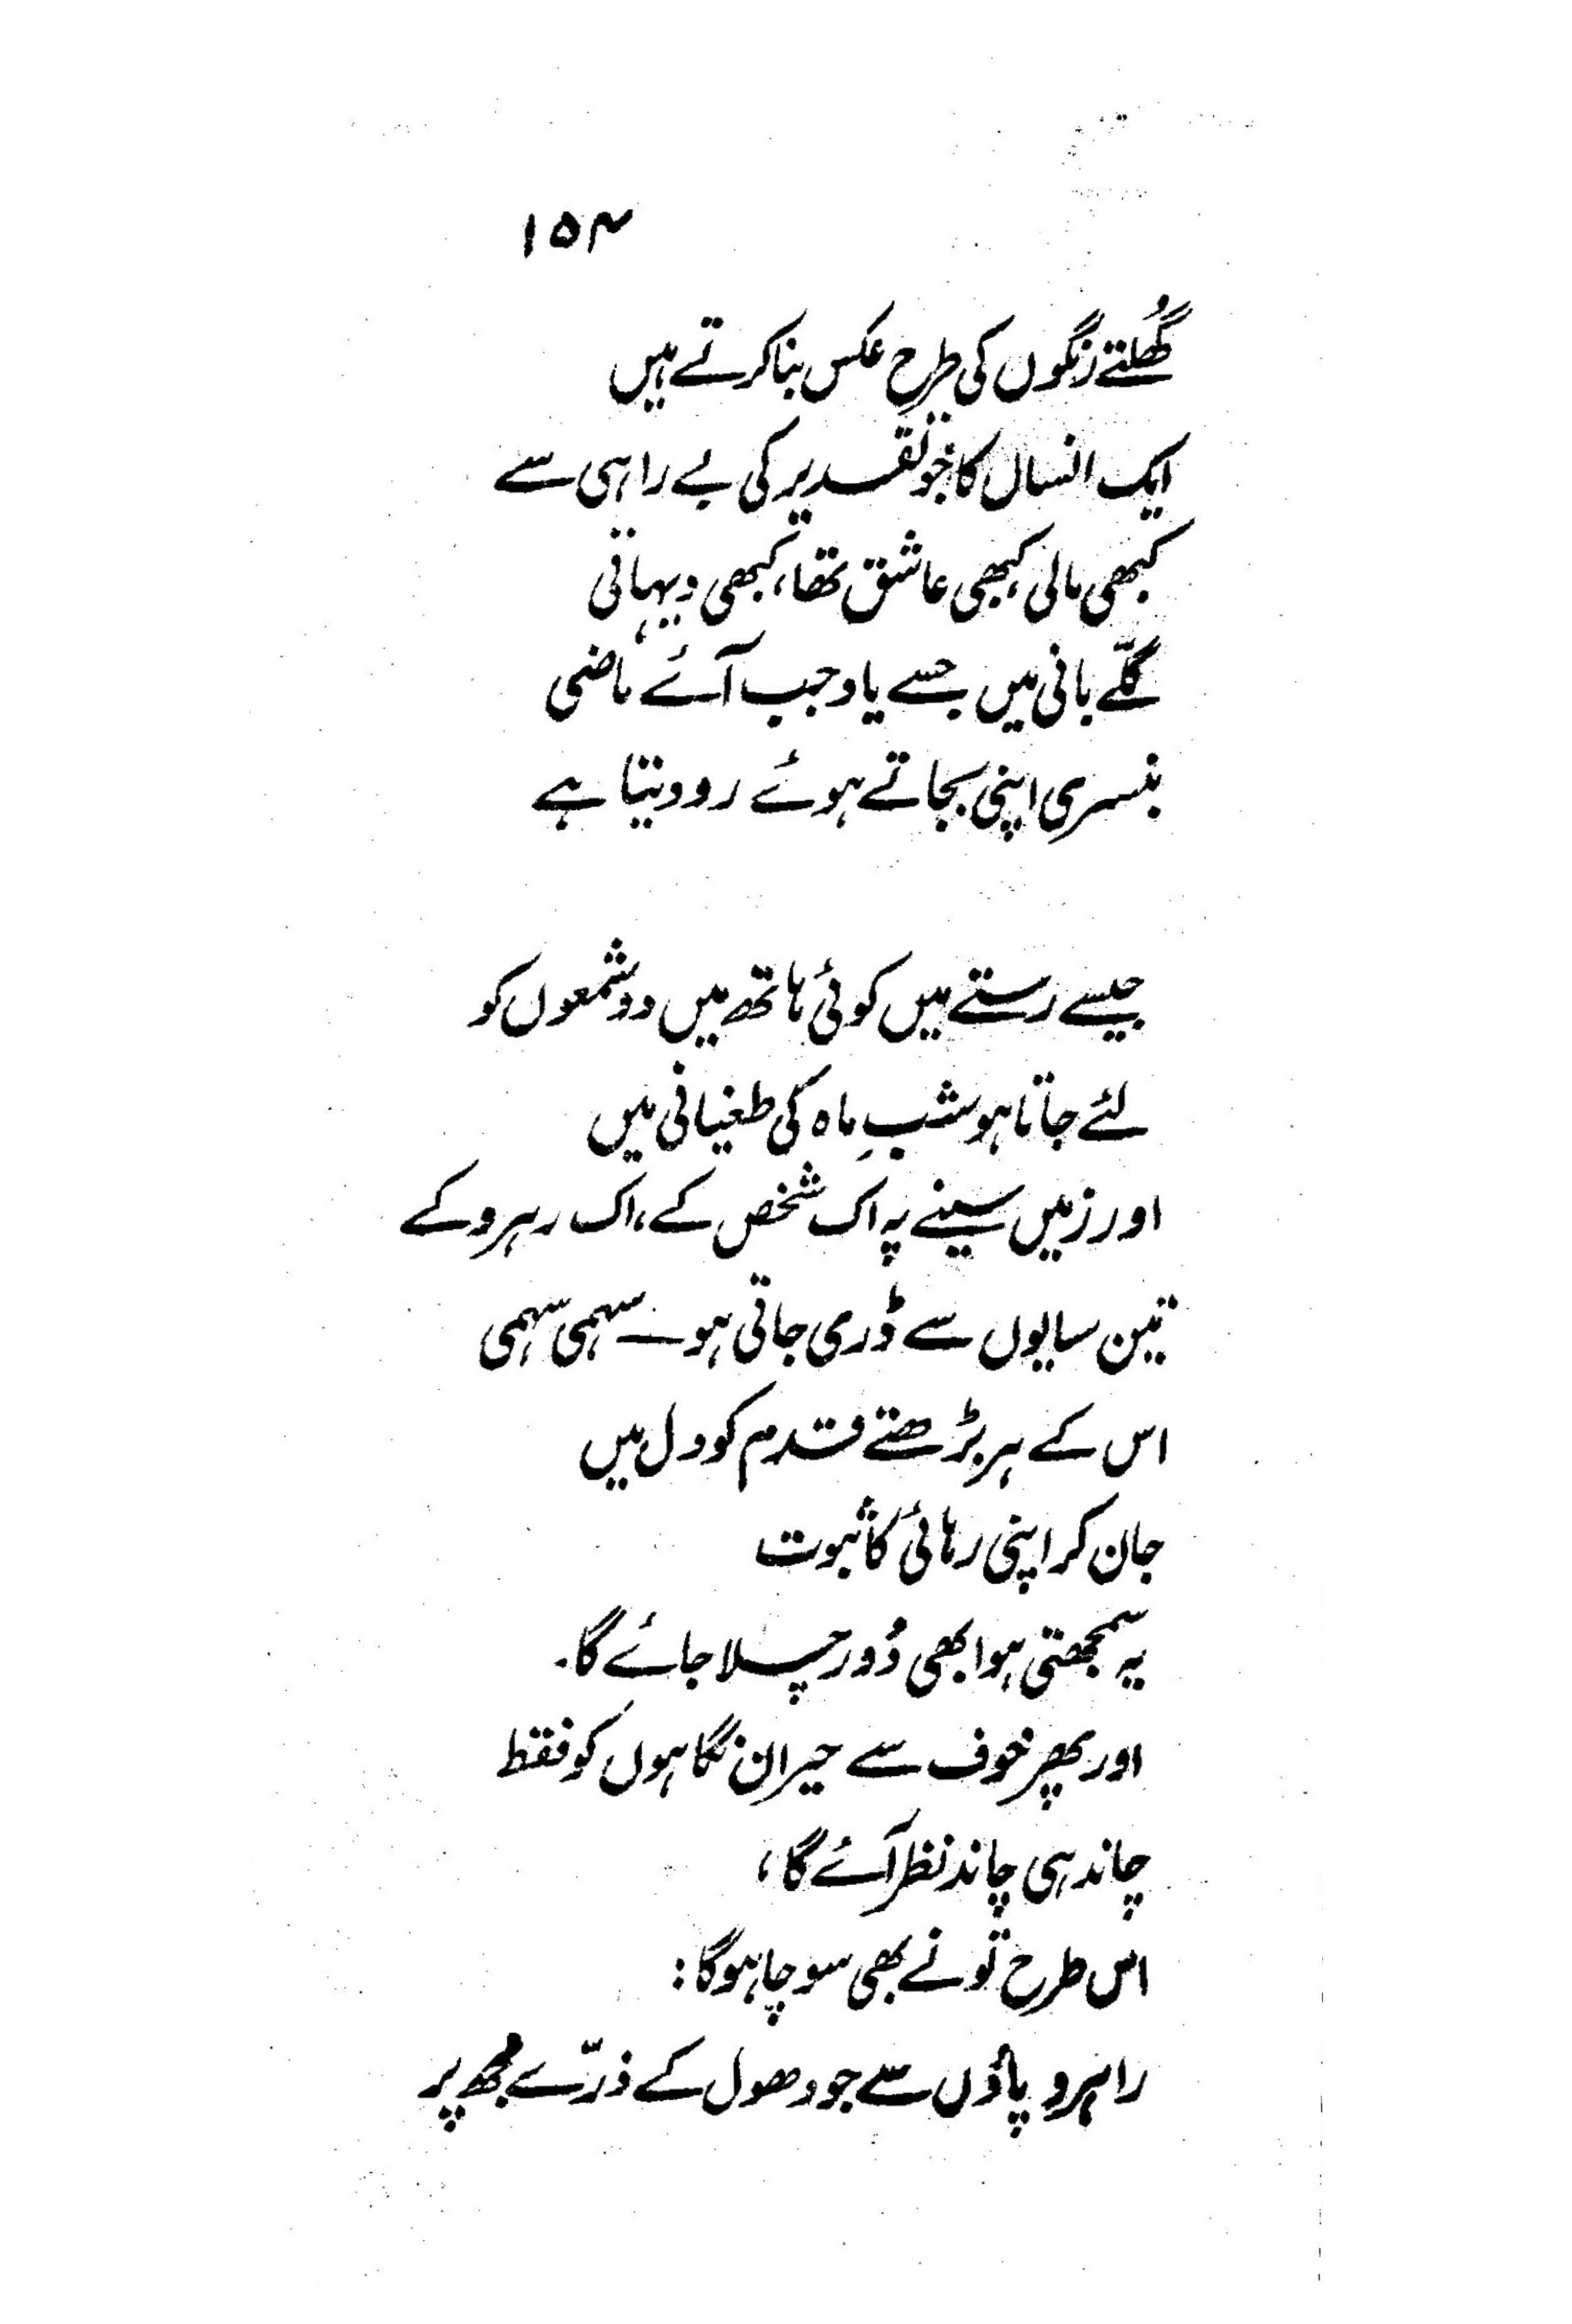 ۱۵۴
گھُلتے رنگوں کی طرح عکس بنا کرتے ہیں
ایک انساں کا جو تقدیر کی بے راہی سے
کبھی مالی، کبھی عاشق تھا، کبھی دیہاتی
گلّے بانی میں جسے یاد جب آئے ماضی
بنسری اپنی بجاتے ہوئے رو دیتا ہے
جیسے رستے میں کوئی ہاتھ میں دو شمعوں کو
لئے جاتا ہو شبِ ماہ کی طغیانی میں
اور زمیں سینے پہ اک شخص کے، اک رہرو کے
تین سایوں سے ڈری جاتی ہو ـــ سہمی سہمی
اس کے ہر بڑھتے قدم کو دل میں
جان کر اپنی رہائی کا ثبوت
یہ سمجھتی ہو ابھی دُور چلا جائے گا۔
اور پھر خوف سے حیران نگاہوں کو فقط
چاند ہی چاند نظر آئے گا،
اس طرح تو نے بھی سوچا ہوگا:
راہرو پاؤں سے جو دھول کے ذرّے مجھ پر